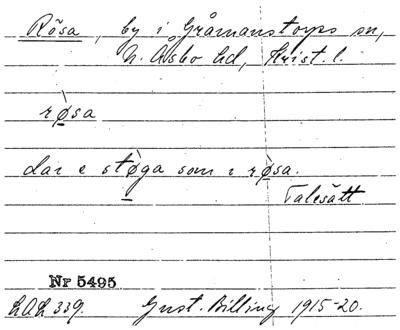 Rösa, by i Gråmanstorps sn,
N. Åsbo hd, Krist. l.
rø̀sa
dar e stø̀ga som i rø̀sa.
Talesätt
Nr 5495
LAL 339. Gust. Billing 1915-20.